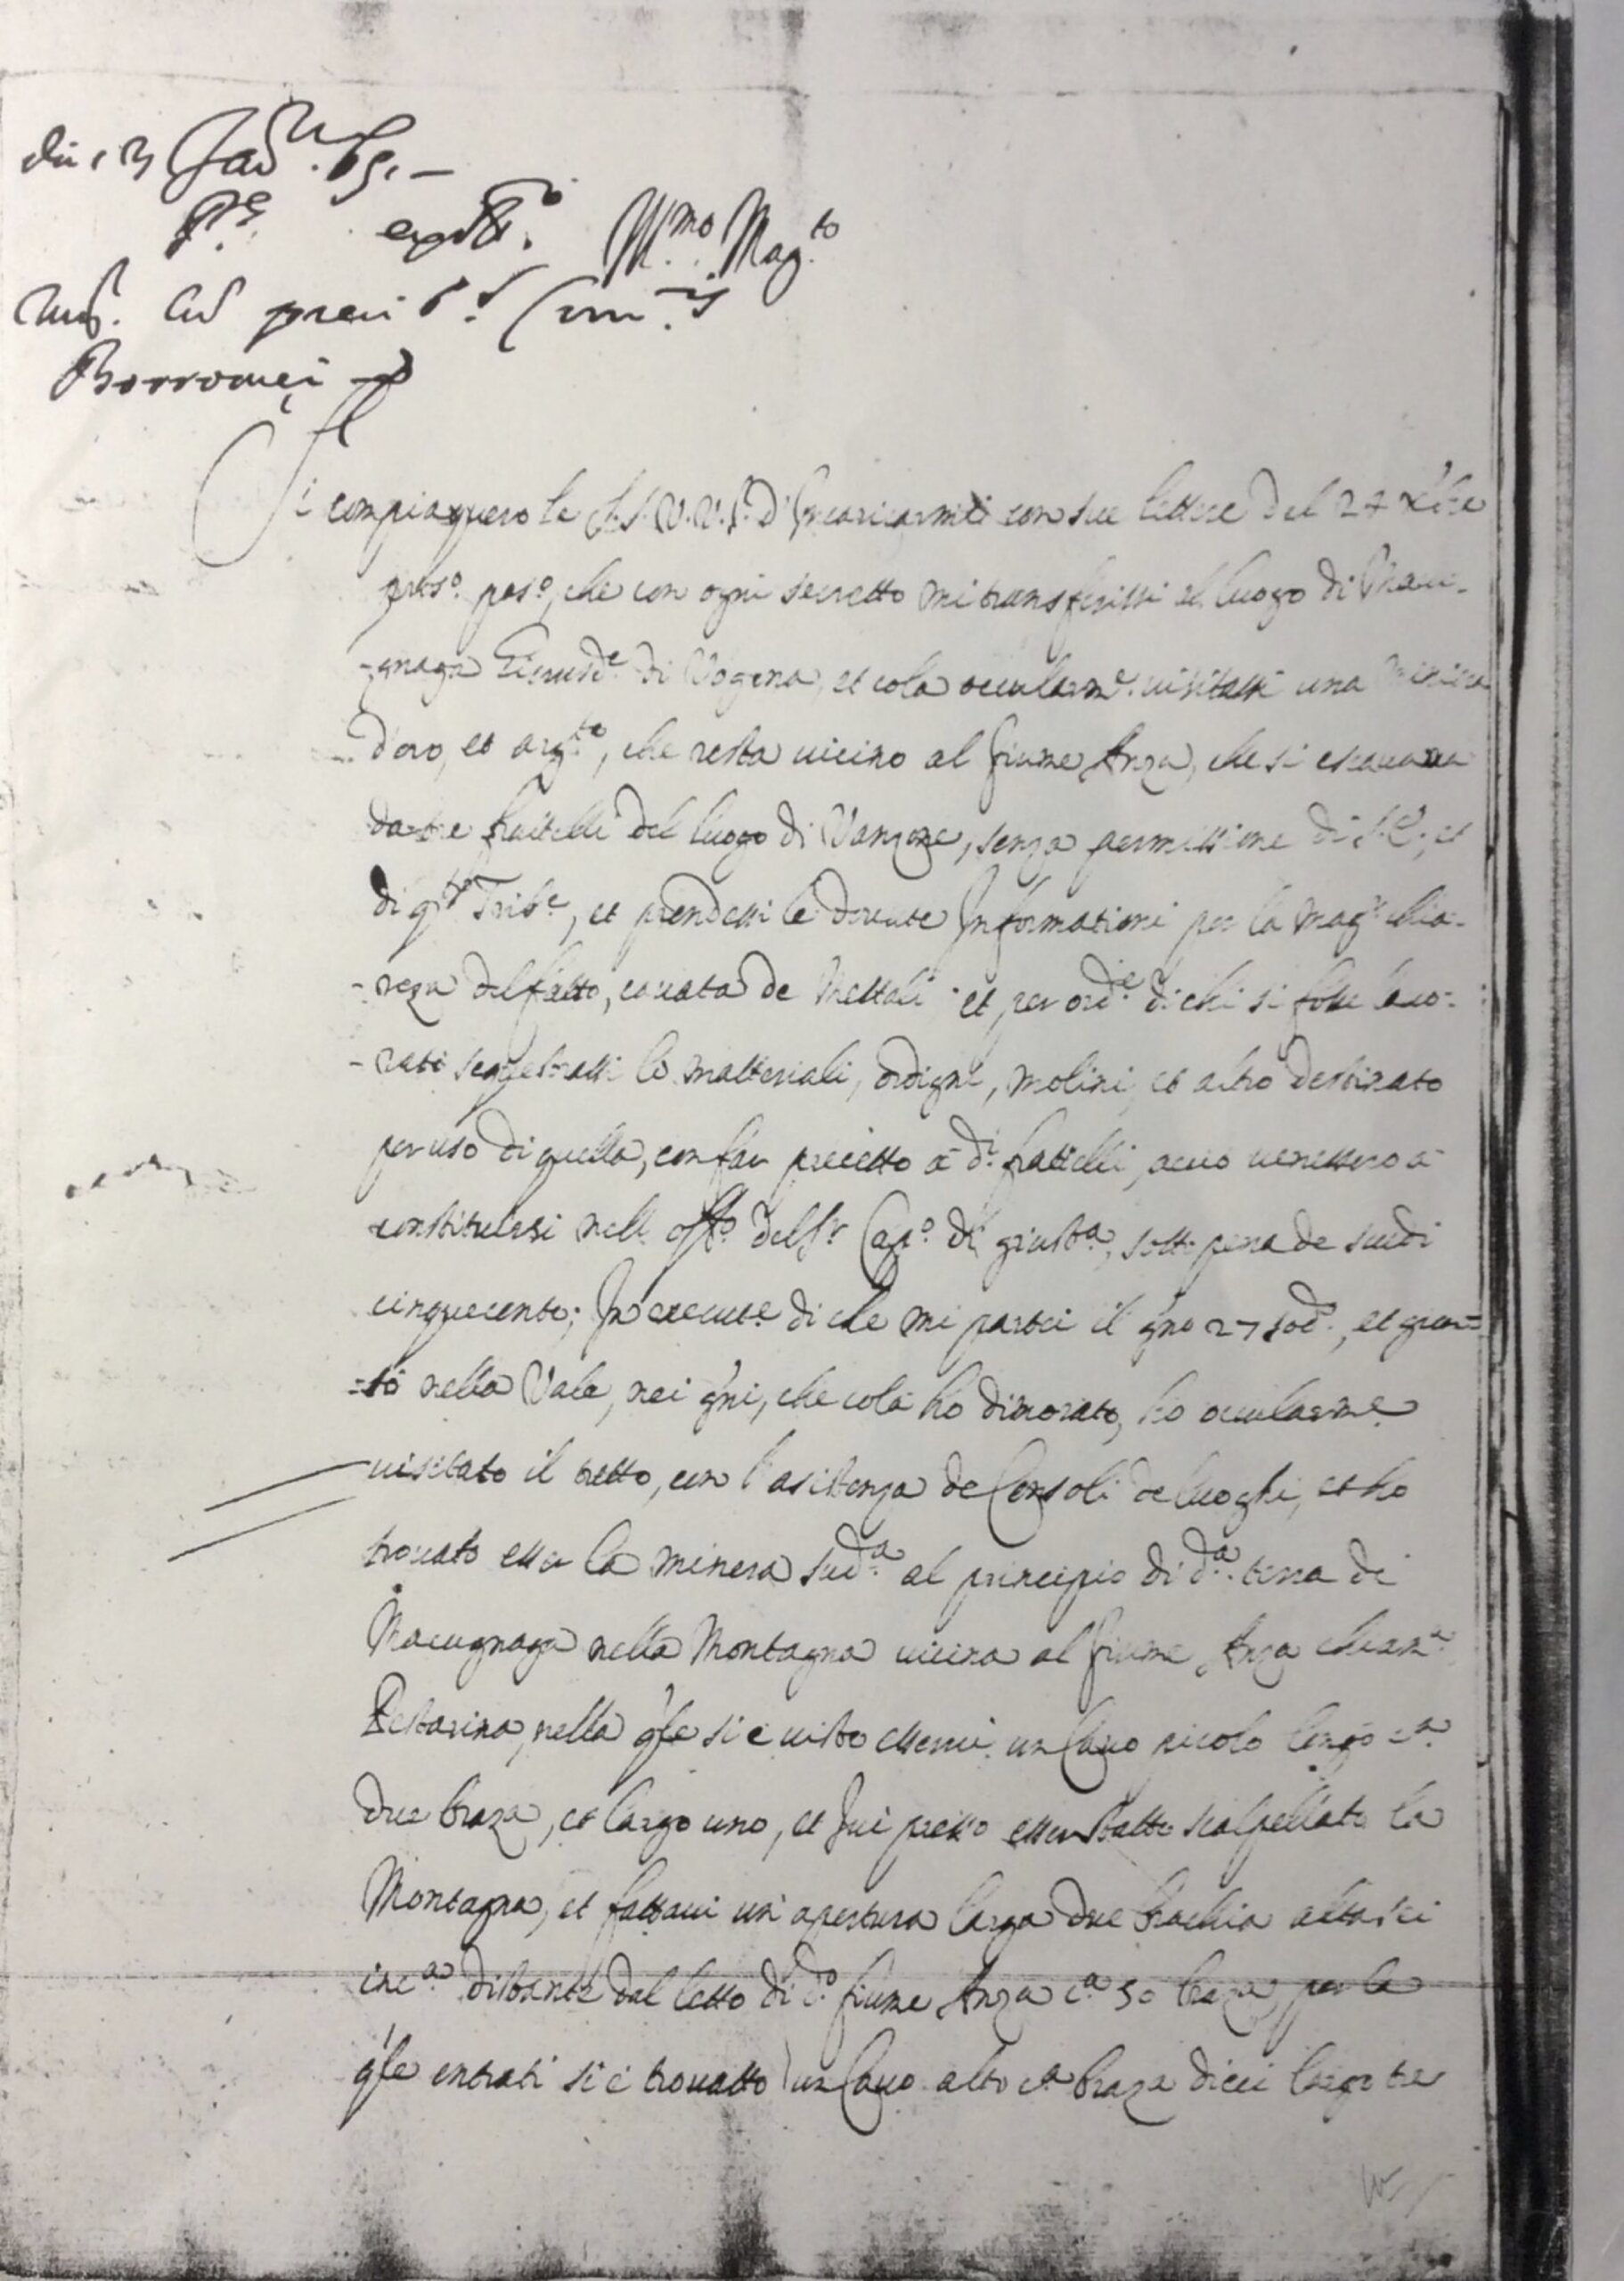 die 13
Ill.mo Mag.to
Borromei
Si compiaquero le S.S. V.V. Ill. d'Incaricarmi con sue lettere del 27 Xbre
pross.o pas.o, che con ogni secretto mi transferissi al luogo di Macu-
-gnaga di Vogogna, et colà occularm.e uisitassi una miniera
d'oro, et arg.to, che resta uicino al fiume Anza, che si escauaua
da tre fratelli del luogo di Vanzone, senza permissione di S.E., et
di q.to Trib.e, et prendessi le douute Informationi per la mag.r chia-
-reza del fatto, cauata de Mettali et per ord.e di chi si fosse lauo-
-rato sequestrassi li matteriali, ordigni, molini, et altro destinato
per uso di quella, con far precetto à d.i fratelli, acciò uenissero à
constituirsi nell off.o del S.r Cap.o di giust.a, sotto pena de scudi
cinquecento; In execut.e di che mi partei il g'no 27 sod.o, et giun=
=to nella Vale, nei g'ni, che colà hò dimorato, hò occularme.
uisitato il tutto, con l'asistenza de Consoli de luoghi, et hò
trouato esser la minera sud.a al principio di d.a terra di
Macugnaga nella Montagna uicina al fiume Anza chiam.a
Pestarina, nella q'le si è uisto esserui un Cauo picolo longo c.a
due braza, et largo uno, et iui presso esser statto scalpellato la
Montagna, et fattaui un apertura larga due brachia alta sei
inc.a distante dal letto di d.o fiume Anza c.a 50 braza, per la
q'le entrati si è trouatto un Cauo alto c.a braza dieci largo tre